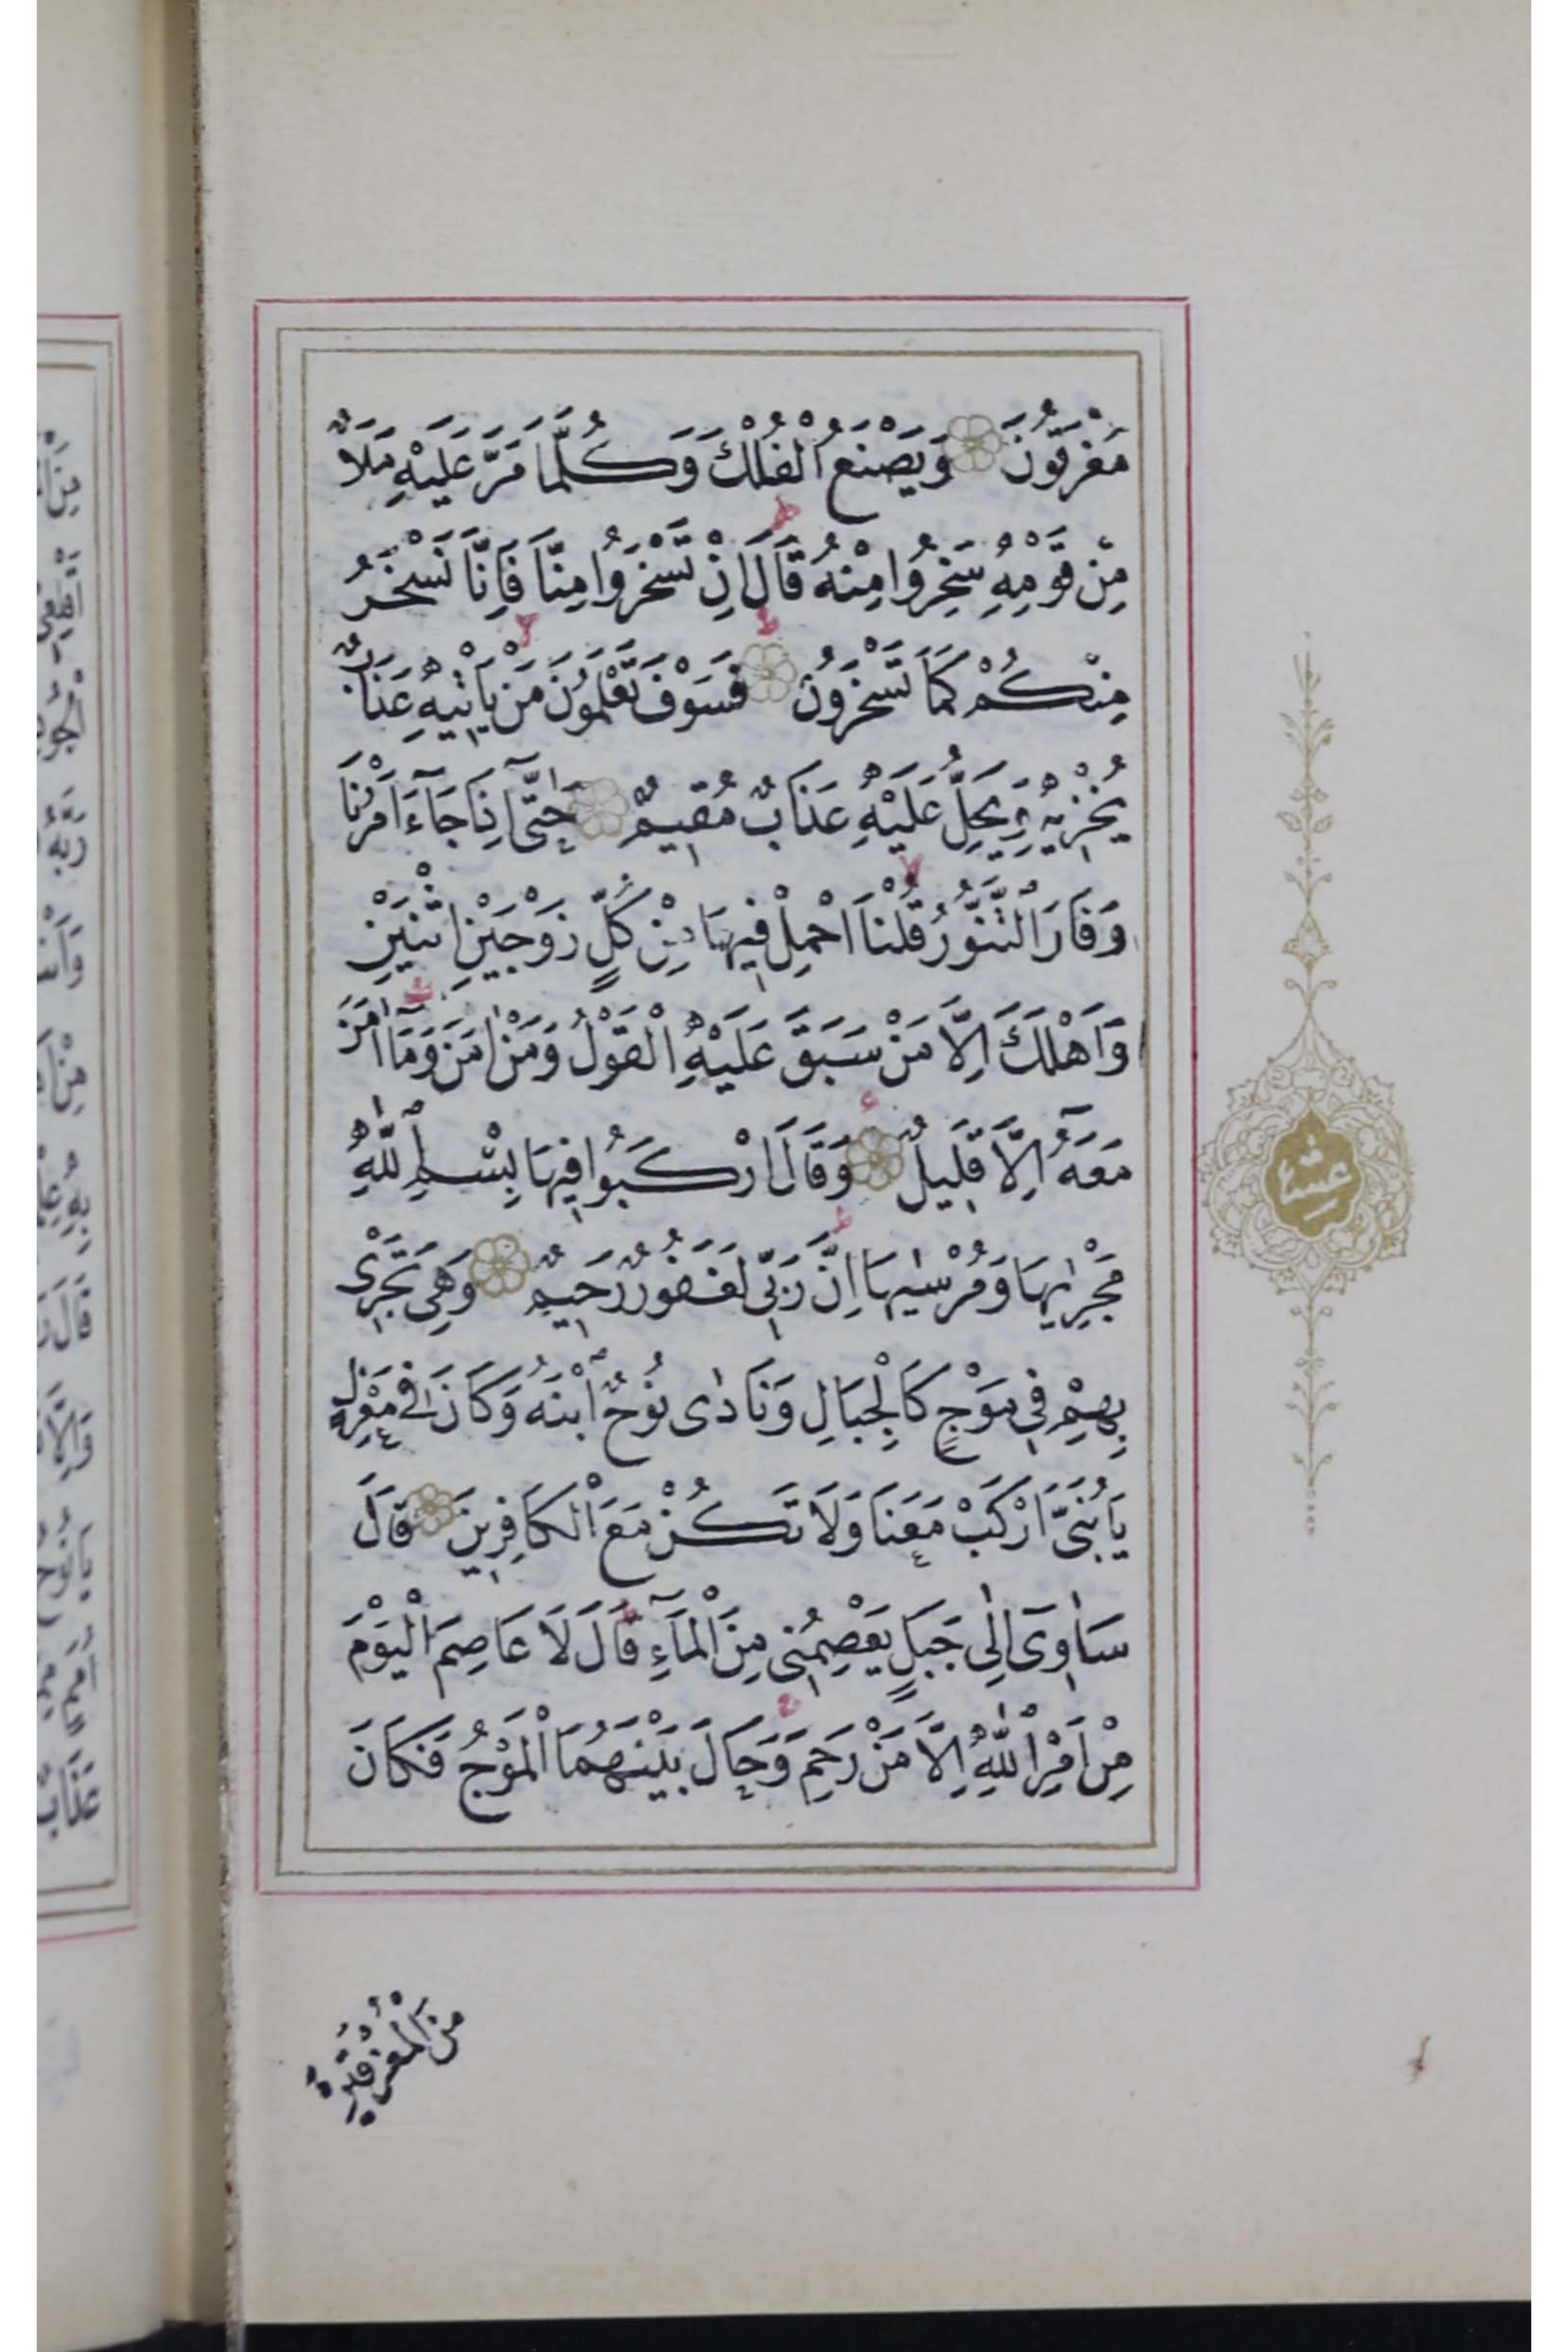 مُغْرَقُونَ وَيَصْنَعُ الْفُلْكَ وَكُلَّمَا مَرَّ عَلَيْهِ مَلَأٌ
مِنْ قَوْمِهِ سَخِرُوا مِنْهُ قَالَ اِنْ تَسْخَرُوا مِنَّا فَاِنَّا نَسْخَرُ
مِنْكُمْ كَمَا تَسْخَرُونَ فَسَوْفَ تَعْلَمُونَ مَنْ يَأْتِيهِ عَذَابٌ
يُخْزِيهِ وَيَحِلُّ عَلَيْهِ عَذَابٌ مُقِيمٌ حَتّٰٓى اِذَا جَآءَ اَمْرُنَا
وَفَارَ التَّنُّورُ قُلْنَا احْمِلْ فِيهَا مِنْ كُلٍّ زَوْجَيْنِ اثْنَيْنِ
وَاَهْلَكَ اِلَّا مَنْ سَبَقَ عَلَيْهِ الْقَوْلُ وَمَنْ اٰمَنَ وَمَآ اٰمَنَ
مَعَهُٓ اِلَّا قَلِيلٌ وَقَالَ ارْكَبُوا فِيهَا بِسْمِ اللّٰهِ
مَجْرٰيهَا وَمُرْسٰيهَا اِنَّ رَبِّى لَغَفُورٌ رَحِيمٌ وَهِىَ تَجْرِى
بِهِمْ فِى مَوْجٍ كَالْجِبَالِ وَنَادٰى نُوحٌ ابْنَهُ وَكَانَ فِى مَعْزِلٍ
يَا بُنَىَّ ارْكَبْ مَعَنَا وَلَا تَكُنْ مَعَ الْكَافِرِينَ قَالَ
سَاٰوِى اِلٰى جَبَلٍ يَعْصِمُنِى مِنَ الْمَآءِ قَالَ لَا عَاصِمَ الْيَوْمَ
مِنْ اَمْرِ اللّٰهِ اِلَّا مَنْ رَحِمَ وَحَالَ بَيْنَهُمَا الْمَوْجُ فَكَانَ
مِنَ الْمُغْرَقِينَ
عشر